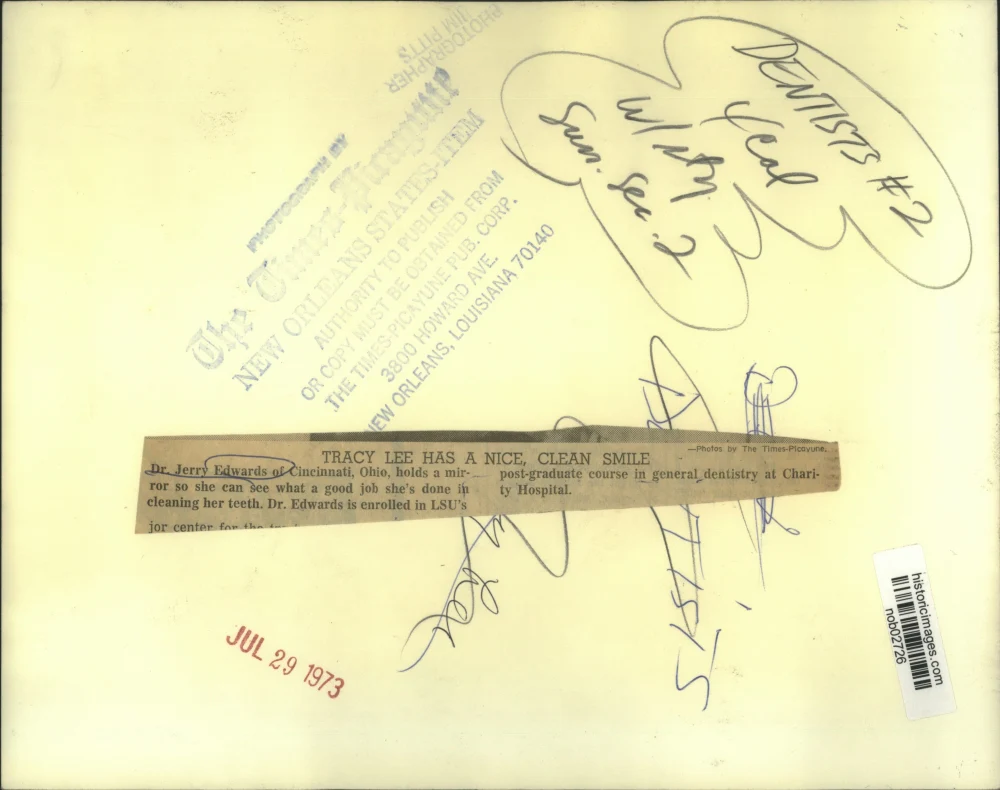 PHOTOGRAPHER
JIM PITTS
PHOTOGRAPH BY
The Times-Picayune
NEW ORLEANS STATES-ITEM
AUTHORITY TO PUBLISH
OR COPY MUST BE OBTAINED FROM
THE TIMES-PICAYUNE PUB. CORP.
3800 HOWARD AVE.
NEW ORLEANS, LOUISIANA 70140
DENTISTS #2
4 col
w/
Sun. Sec. 2
—Photos by The Times-Picayune.
TRACY LEE HAS A NICE, CLEAN SMILE
Dr. Jerry Edwards of Cincinnati, Ohio, holds a mir-
ror so she can see what a good job she's done in
cleaning her teeth. Dr. Edwards is enrolled in LSU's
post-graduate course in general dentistry at Chari-
ty Hospital.
jor center for the
Lee
JUL 29 1973
historicimages.com
nob02726